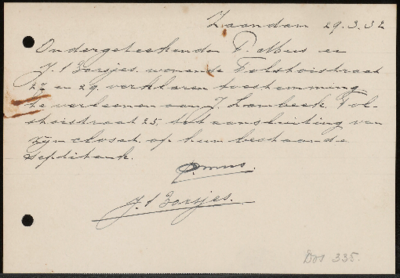 Zaandam 29.3.32
Ondergeteekenden P. Mus en
J. S Gorsjes. wonende Tolstoistraat
27 en 29 verklaren toestemming
te verleenen aan J. Lambeck Tol-
stoistraat 25 tot aansluiting van
zijn closet op hun bestaande
septictank.
P. Mus.
J. S Gorsjes.
Dos 335.